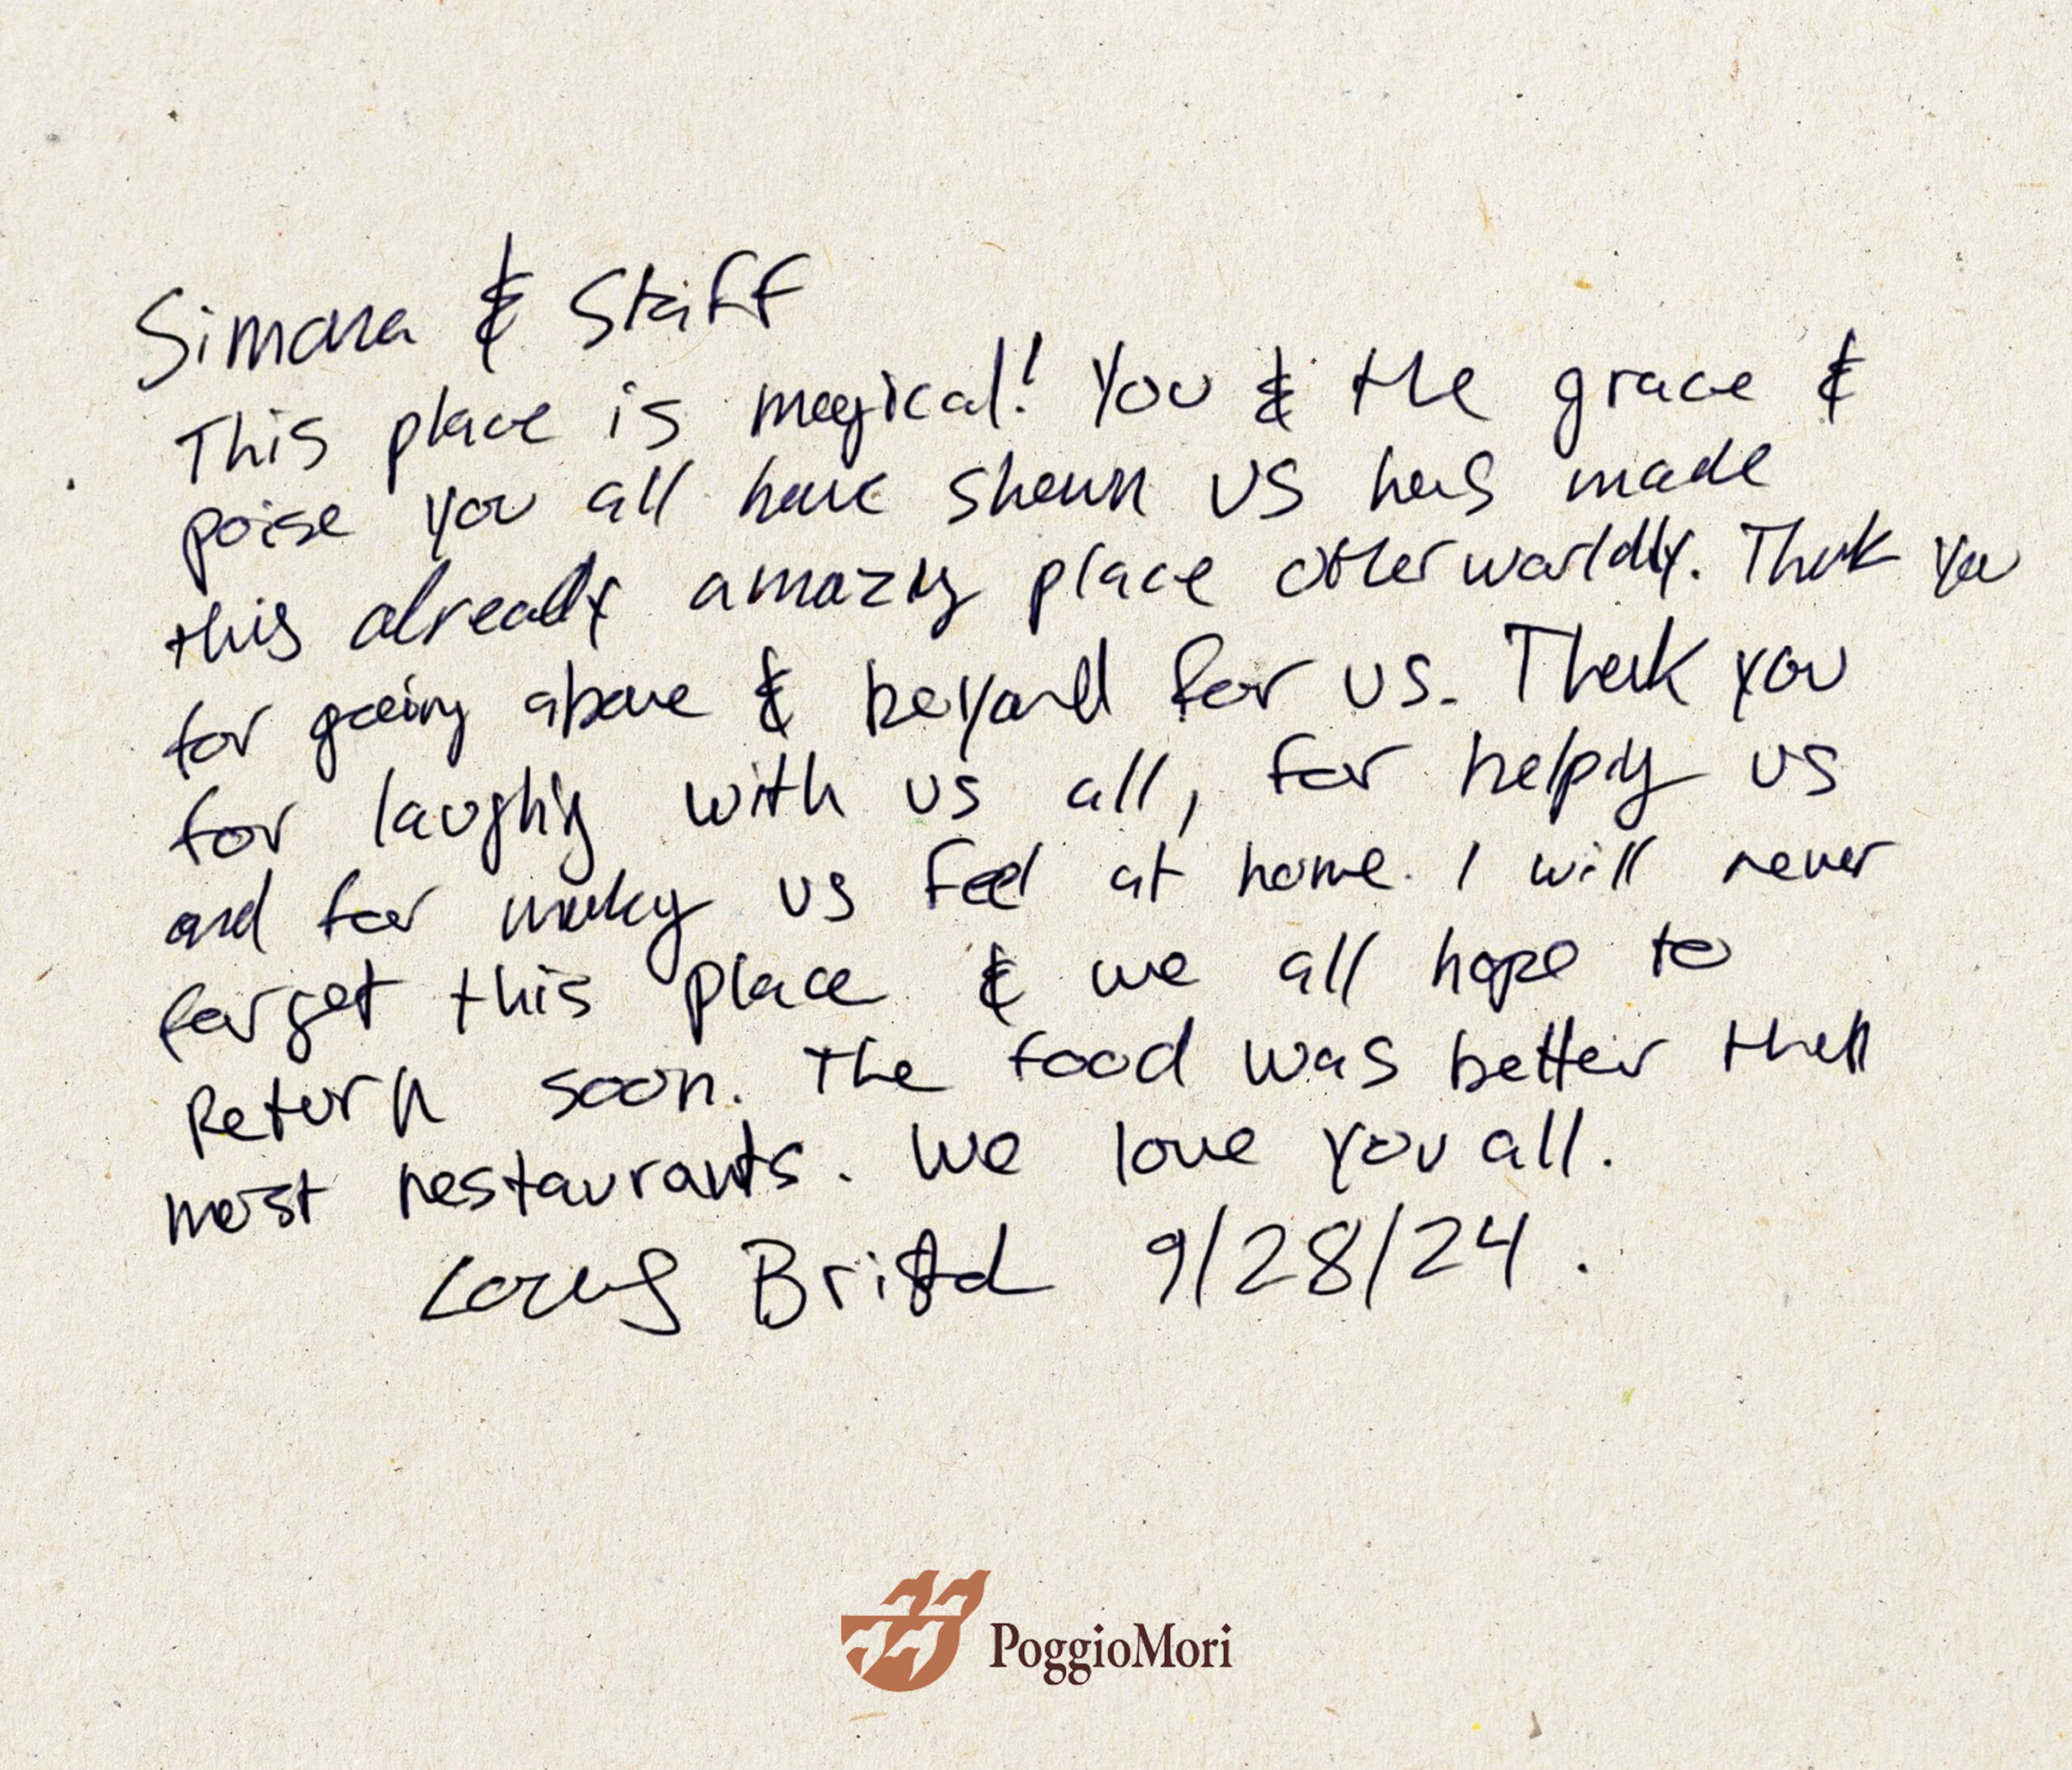 Simona & Staff
This place is magical! You & the grace &
poise you all have shown us has made
this already amazing place otherworldly. Thank you
for going above & beyond for us. Thank you
for laughing with us all, for helping us
and for making us feel at home. I will never
forget this place & we all hope to
Return soon. The food was better than
most restaurants. We love you all.
9/28/24.
PoggioMori